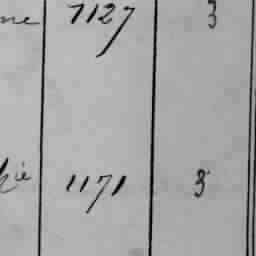 ne 7127 3
hie 1171 3